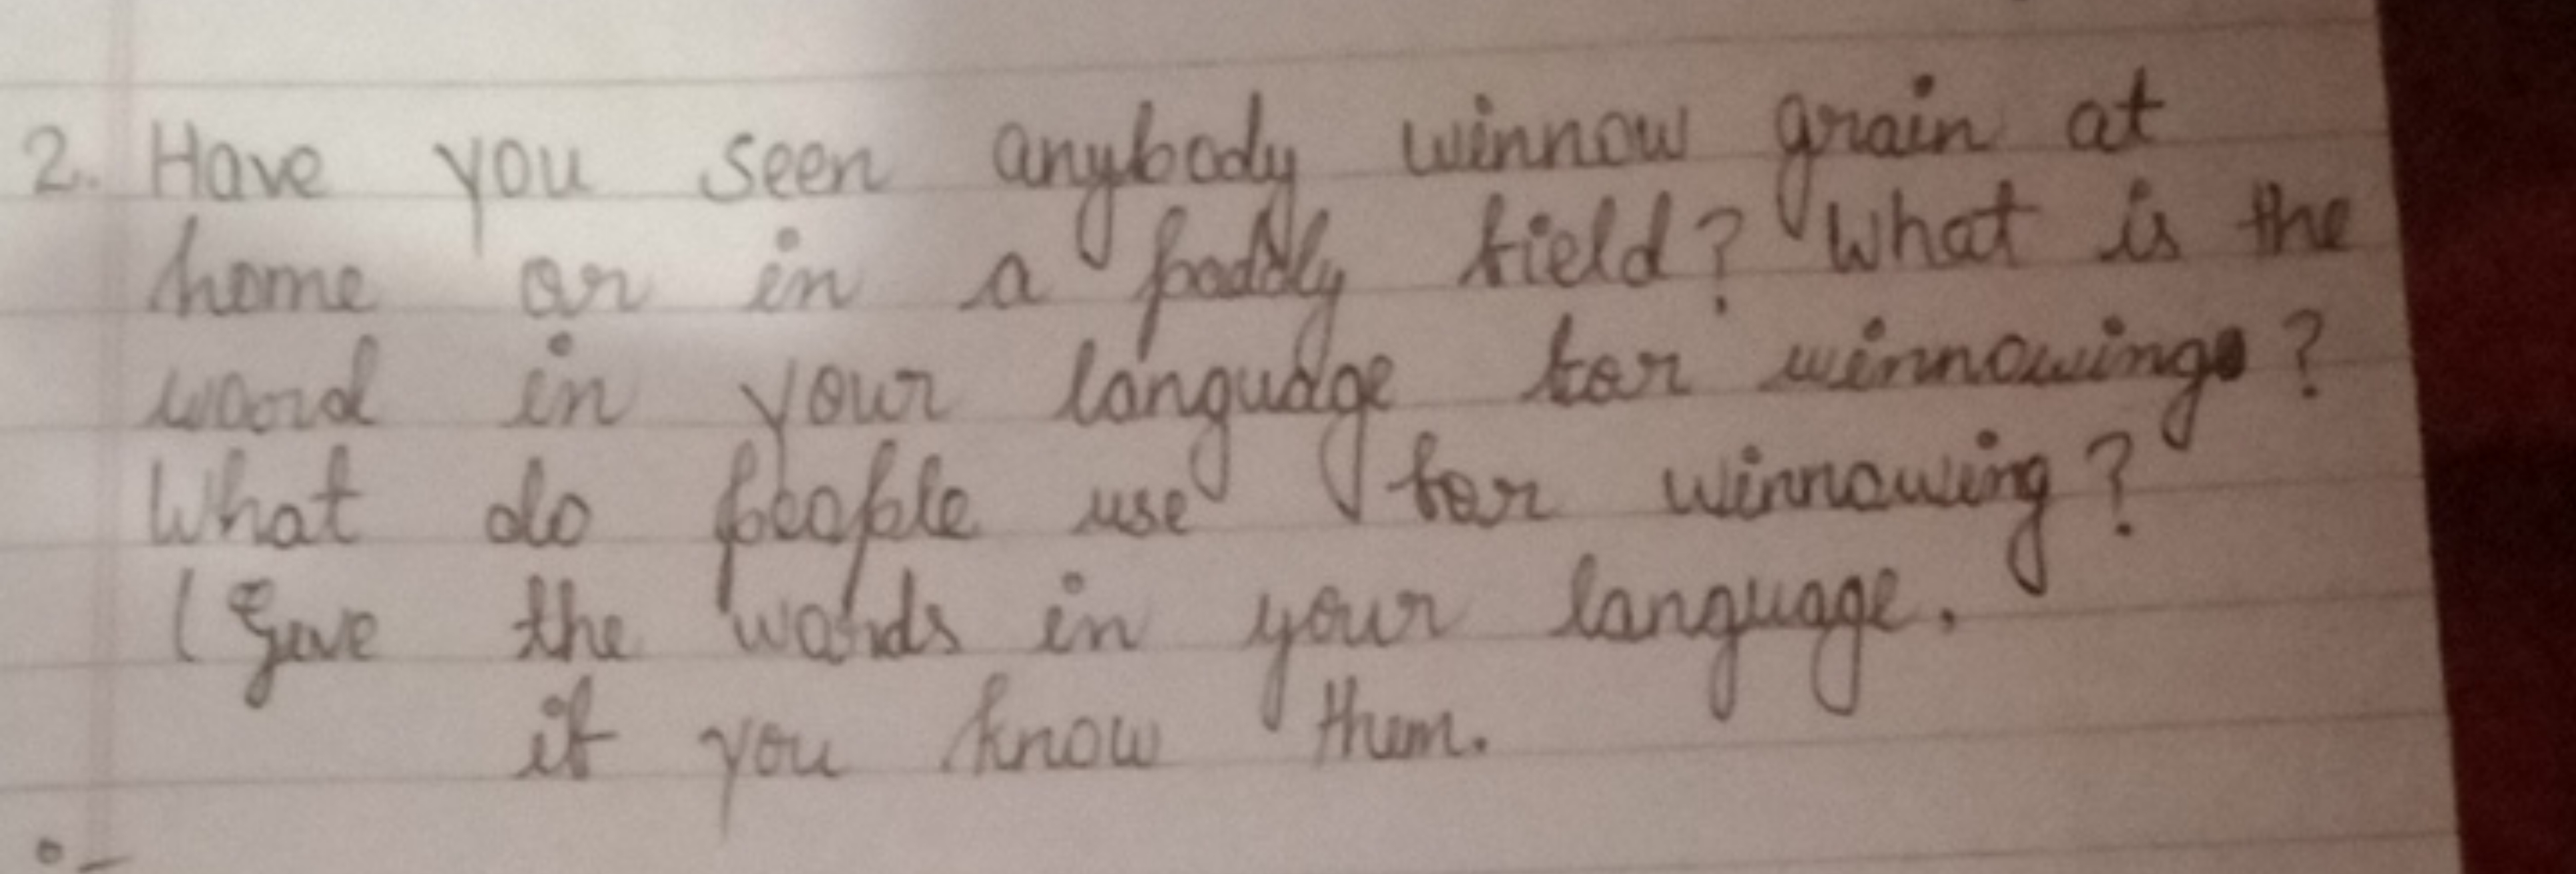 2. Have you seen anybody winnow grain at
home or in a paddly field? What is the
word in your language for winnowing?
What do people use for winnowing?
(Give the words in your language.
if you know them.
:-